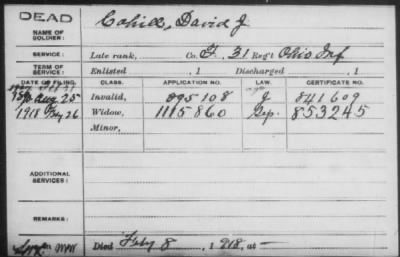 DEAD
NAME OF SOLDIER: Cahill, David J
SERVICE: Late rank, Co. F, 31 Reg't Ohio Inf
TERM OF SERVICE: Enlisted , 1 Discharged , 1
DATE OF FILING. CLASS. APPLICATION NO. LAW. CERTIFICATE NO.
Aug 25 Invalid, 895108 J 841609
1918 Feby 26 Widow, 1115860 Gep. 853245
Minor,
ADDITIONAL SERVICES:
REMARKS:
Died Feby 8, 1918, at —